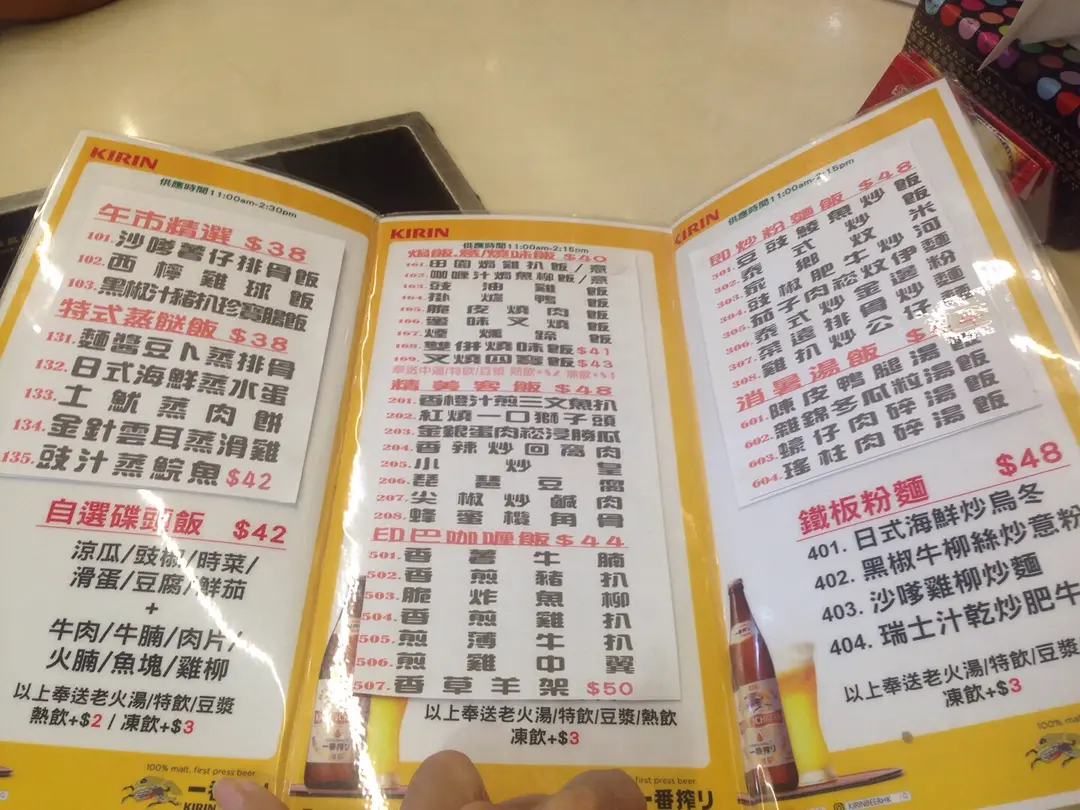 KIRIN
供應時間11:00am-2:30pm
午市精選 $38
101.沙嗲薯仔排骨飯
102.西檸雞球飯
103.黑椒汁豬扒珍寶腸飯
特式蒸餸飯 $38
131.麵醬豆卜蒸排骨
132.日式海鮮蒸水蛋
133.土魷蒸肉餅
134.金針雲耳蒸滑雞
135.豉汁蒸鯇魚 $42
自選碟頭飯 $42
涼瓜/豉椒/時菜/
滑蛋/豆腐/鮮茄
+
牛肉/牛腩/肉片/
火腩/魚塊/雞柳
以上奉送老火湯/特飲/豆漿
熱飲+$2 / 凍飲+$3
100% malt, first press beer.
KIRIN
KIRIN
供應時間11:00am-2:15pm
焗飯.意/燒味飯 $40
161.田園焗雞扒飯/意
162.咖喱汁焗魚柳飯/意
163.豉油雞飯
164.掛爐鴨飯
165.脆皮燒肉飯
166.蜜味叉燒飯
167.煙燻蹄飯
168.雙併燒味飯 $41
169.叉燒四寶飯 $43
奉送中湯/特飲/豆漿 熱飲+$2 凍飲+$3
精美客飯 $48
201.香橙汁煎三文魚扒
202.紅燒一口獅子頭
203.金銀蛋肉崧浸勝瓜
204.香辣炒回窩肉
205.小炒皇
206.琵琶豆腐
207.尖椒炒鹹肉
208.蜂蜜欖角骨
印巴咖喱飯 $44
501.香薯牛腩
502.香煎豬扒
503.脆炸魚柳
504.香煎雞扒
505.煎薄牛扒
506.煎雞中翼
507.香草羊架 $50
以上奉送老火湯/特飲/豆漿/熱飲
凍飲+$3
first press beer.
一番搾り
KIRIN
供應時間11:00am-2:15pm
即炒粉麵飯 $48
301.豆豉鯪魚炒飯
302.泰式炆米
303.豉椒肥牛炒河
304.茄子肉崧炆伊麵
305.泰式炒金邊粉
306.菜遠排骨炒麵
307.雞扒炒公仔麵
308.
消暑湯飯
601.陳皮鴨腿湯飯
602.雜錦冬瓜粒湯飯
603.蠔仔肉碎湯飯
604.瑤柱肉碎湯飯
鐵板粉麵 $48
401. 日式海鮮炒烏冬
402. 黑椒牛柳絲炒意粉
403. 沙嗲雞柳炒麵
404. 瑞士汁乾炒肥牛
以上奉送老火湯/特飲/豆漿/
凍飲+$3
100% malt
KIRINBEERHK